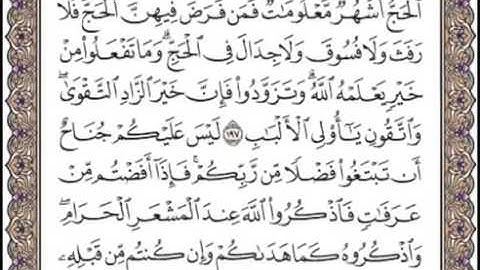 ٱلْحَجُّ أَشْهُرٌ مَّعْلُومَٰتٌ فَمَن فَرَضَ فِيهِنَّ ٱلْحَجَّ فَلَا
رَفَثَ وَلَا فُسُوقَ وَلَا جِدَالَ فِى ٱلْحَجِّ وَمَا تَفْعَلُوا۟ مِنْ
خَيْرٍ يَعْلَمْهُ ٱللَّهُ وَتَزَوَّدُوا۟ فَإِنَّ خَيْرَ ٱلزَّادِ ٱلتَّقْوَىٰ
وَٱتَّقُونِ يَٰٓأُو۟لِى ٱلْأَلْبَٰبِ ١٩٧ لَيْسَ عَلَيْكُمْ جُنَاحٌ
أَن تَبْتَغُوا۟ فَضْلًا مِّن رَّبِّكُمْ فَإِذَآ أَفَضْتُم مِّنْ
عَرَفَٰتٍ فَٱذْكُرُوا۟ ٱللَّهَ عِندَ ٱلْمَشْعَرِ ٱلْحَرَامِ
وَٱذْكُرُوهُ كَمَا هَدَىٰكُمْ وَإِن كُنتُم مِّن قَبْلِهِۦ